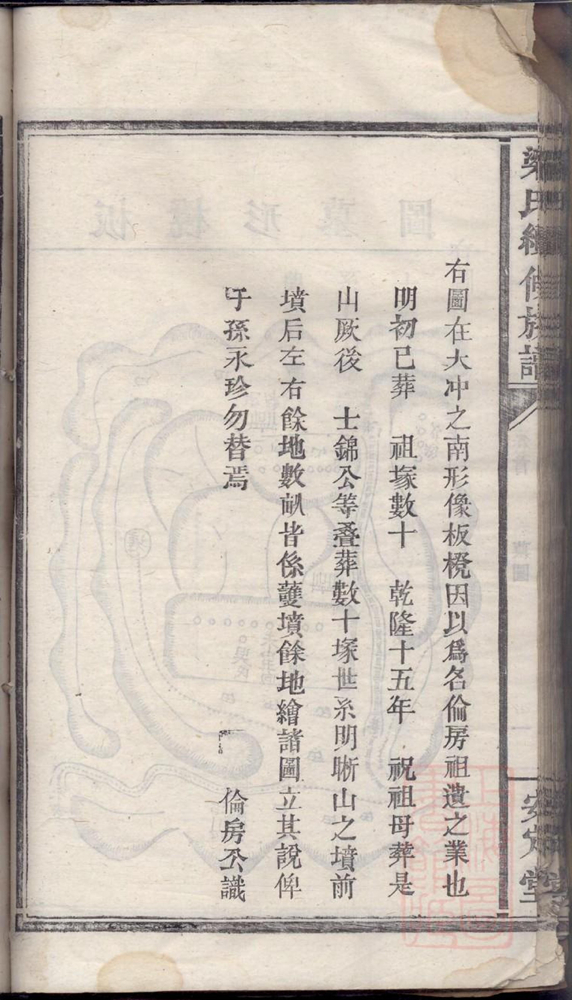 梁氏續修族譜
安定堂
右圖在大冲之南形像板櫈因以爲名倫房祖遺之業也
明初已葬　祖塚數十　乾隆十五年　祝祖母葬是
山厥後　士錦公等叠葬數十塚世系明晰山之墳前
墳后左右餘地數畝皆係護墳餘地繪諸圖立其說俾
子孫永珍勿替焉　倫房公識